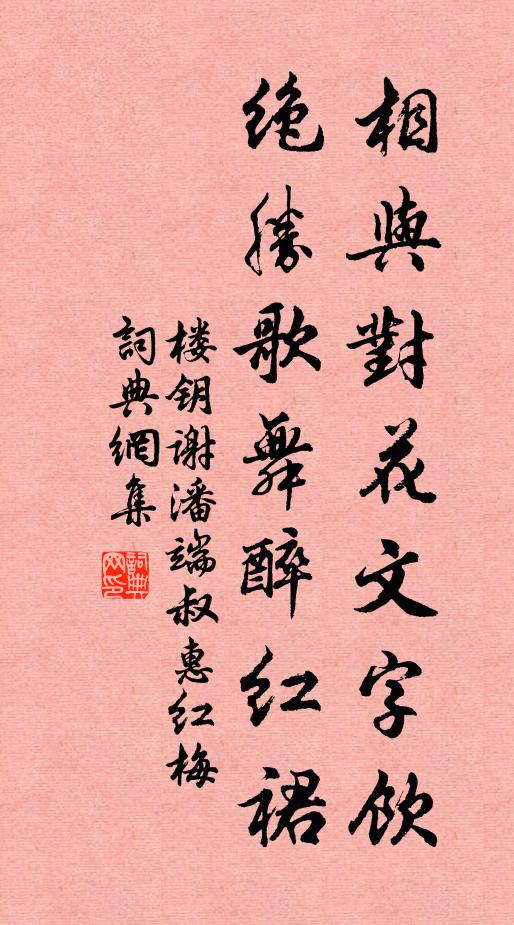 相與對花文字飲
绝勝歌舞醉红裙
楼钥谢潘端叔惠红梅
詞典網集
詞典网印